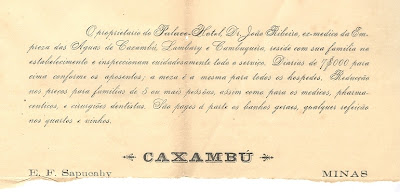 O proprietario do Palace-Hotel, Dr. João Ribeiro, ex-medico da Em-
preza das Aguas de Caxambú, Lambary e Cambuquira, reside com sua familia no
estabelecimento e inspeccionam cuidadosamente todo o serviço. Diarias de 7$000 para
cima conforme os aposentos; a meza é a mesma para todos os hospedes. Reducção
nos preços para familias de 5 ou mais pessôas, assim como para os medicos, pharma-
ceuticos, e cirurgiões dentistas. São pagos á parte os banhos geraes, qualquer refeição
nos quartos e vinhos.
CAXAMBÚ
E. F. Sapucahy MINAS